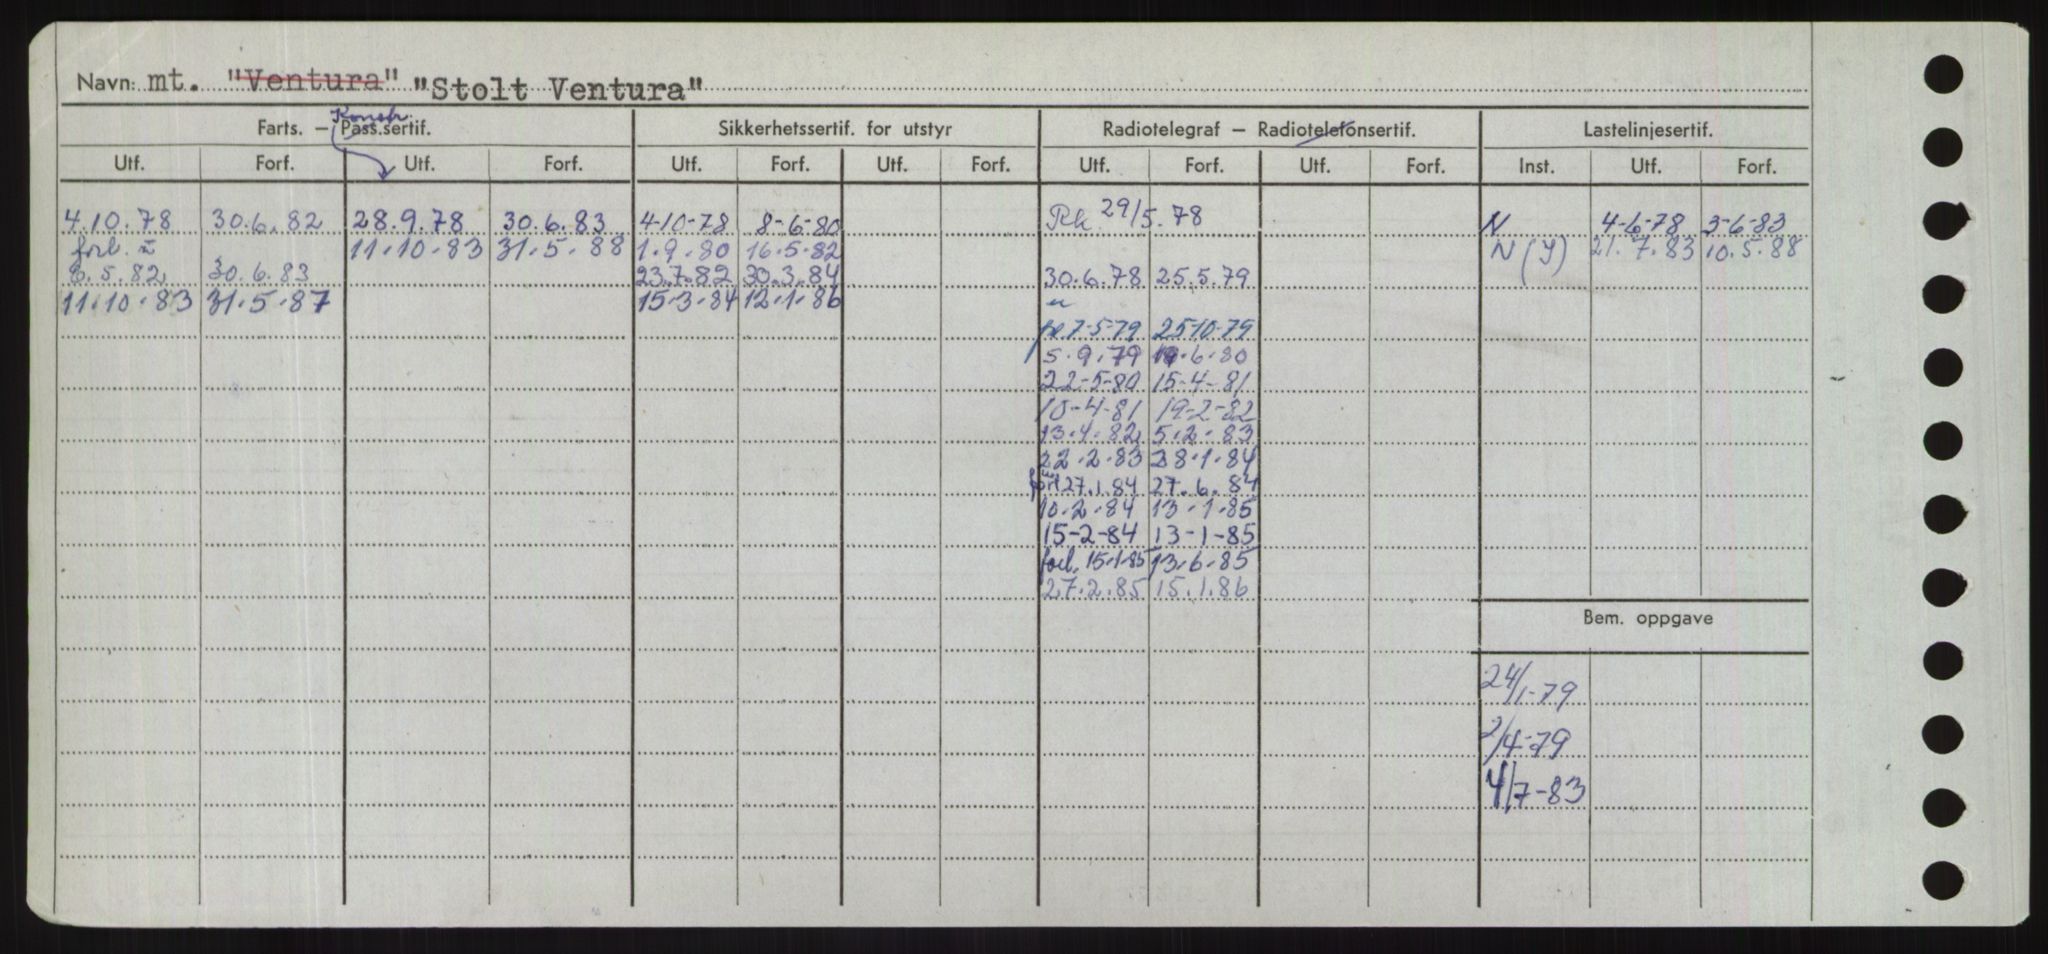 Navn: mt. "Ventura" "Stolt Ventura"
Konstr.
Farts. — Pass.sertif. Sikkerhetssertif. for utstyr Radiotelegraf — Radiotelefonsertif. Lastelinjesertif.
Utf. Forf. Utf. Forf. Utf. Forf. Utf. Forf. Utf. Forf. Utf. Forf. Inst. Utf. Forf.
4.10.78 30.6.82 28.9.78 30.6.83 4-10-78 8-6-80 29/5.78 N 4-6-78 3-6-83
forl. 11.10.83 31.5.88 1.9.80 16.5.82 N (Y) 21.7.83 10.5.88
8.5.82 30.6.83 23.7.82 30.3.84 30.6.78 25.5.79
11.10.83 31.5.87 15.3.84 12.1.86
7-5-79 25-10-79
5.9.79 19.6.80
22-5-80 15-4-81
10-4-81 19-2-82
13.4.82 5.2.83
22.2.83 28.1.84
27.1.84 27.6.84
10.2.84 13.1.85
15-2-84 13-1-85
forl. 15.1.85 13.6.85
27.2.85 15.1.86
Bem. oppgave
24/1-79
2/4-79
4/7-83